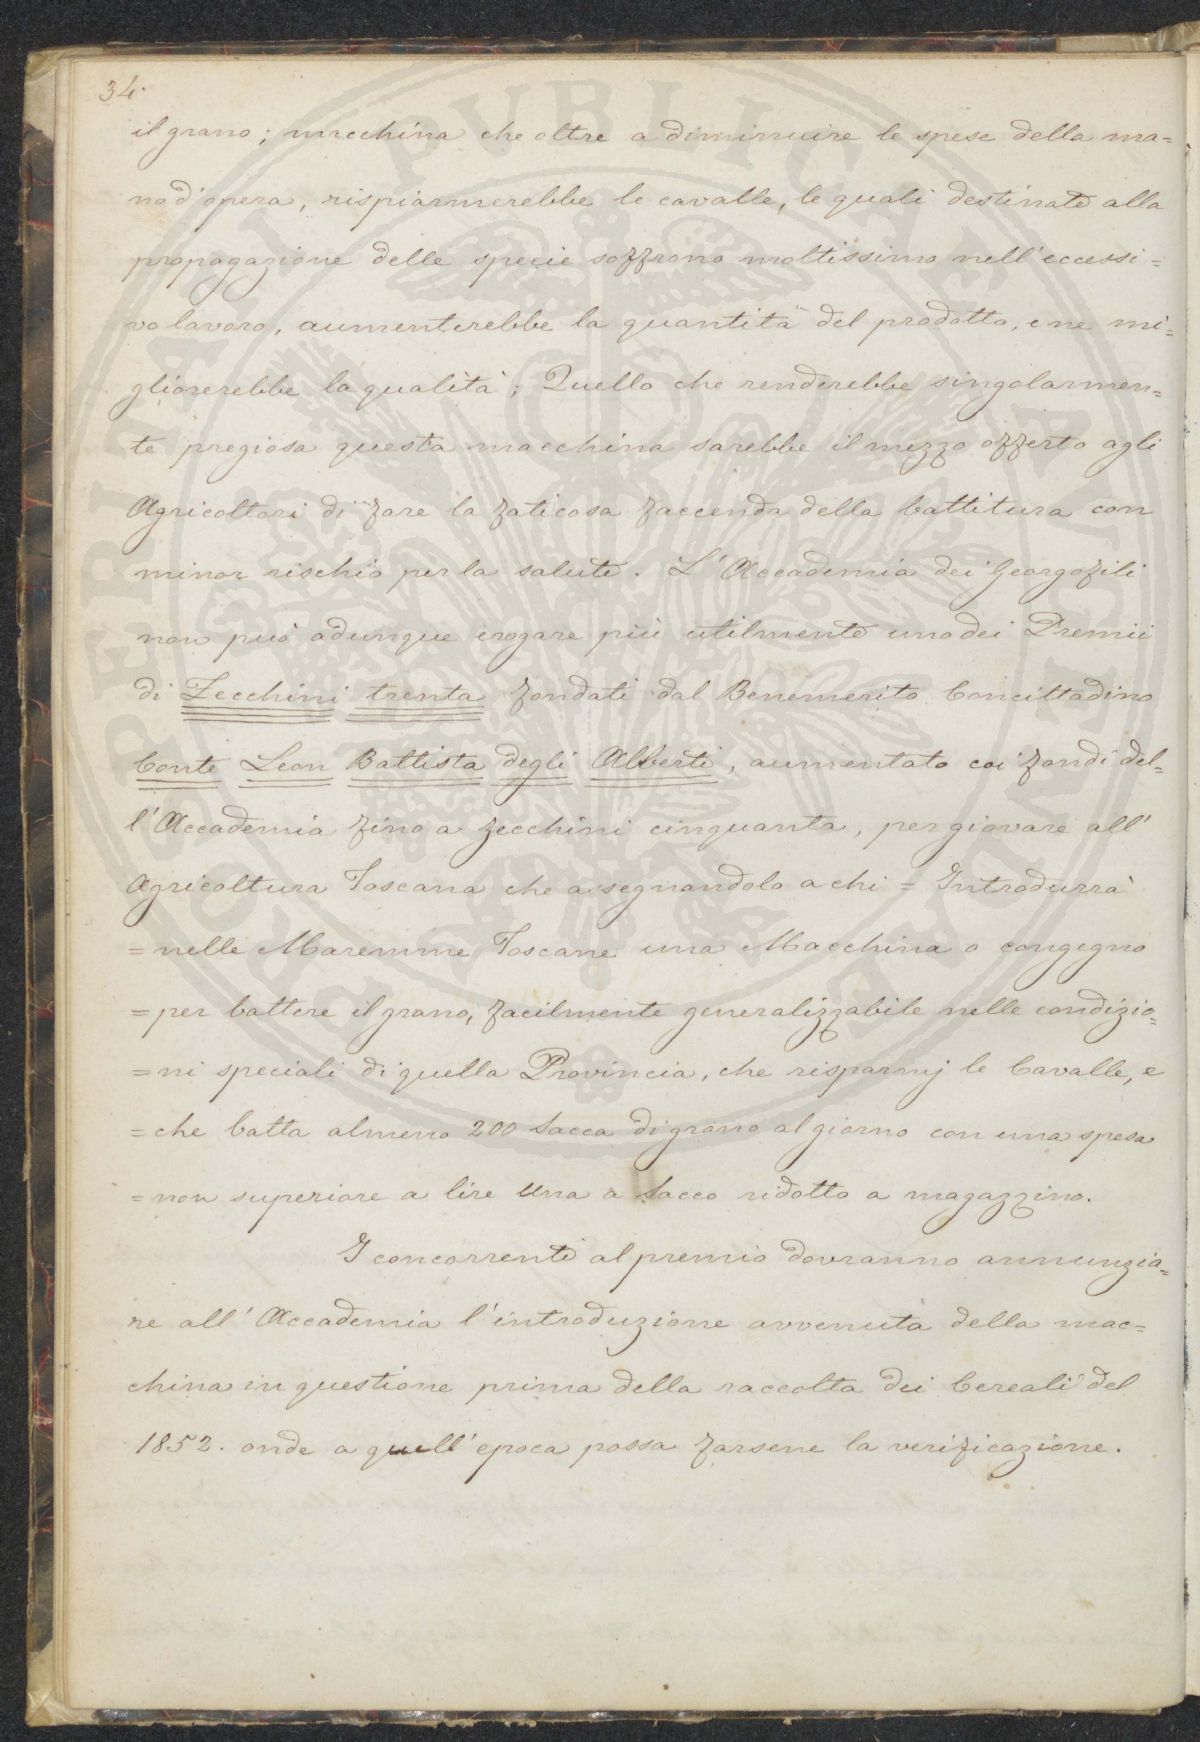 34.
il grano; macchina che oltre a diminuire le spese della ma=
no d'opera, rispiarmerebbe le cavalle, le quali destinate alla
propagazione delle specie soffrono moltissimo nell'eccessi=
vo lavoro, aumenterebbe la quantità del prodotto, e ne mi=
gliorerebbe la qualità; Quello che renderebbe singolarmen=
te pregiosa questa macchina sarebbe il mezzo offerto agli
Agricoltori di fare la faticosa faccenda della battitura con
minor rischio per la salute. L'Accademia dei Georgofili
non può adunque erogare più utilmente uno dei Premii
di Zecchini trenta fondati dal Benemerito Concittadino
Conte Leon Battista degli Alberti, aumentato coi fondi del=
l'Accademia fino a zecchini cinquanta, per giovare all'
Agricoltura Toscana che assegnandolo a chi = Introdurrà
= nelle Maremme Toscane una Macchina o congegno
= per battere il grano, facilmente generalizzabile nelle condizio=
= ni speciali di quella Provincia, che risparmj le Cavalle, e
= che batta almeno 200 Sacca di grano al giorno con una spesa
= non superiore a lire una a Sacco ridotto a magazzino.
I concorrenti al premio dovranno annunzia=
re all'Accademia l'introduzione avvenuta della mac=
china in questione prima della raccolta dei Cereali del
1852. onde a quell'epoca possa farsene la verificazione.